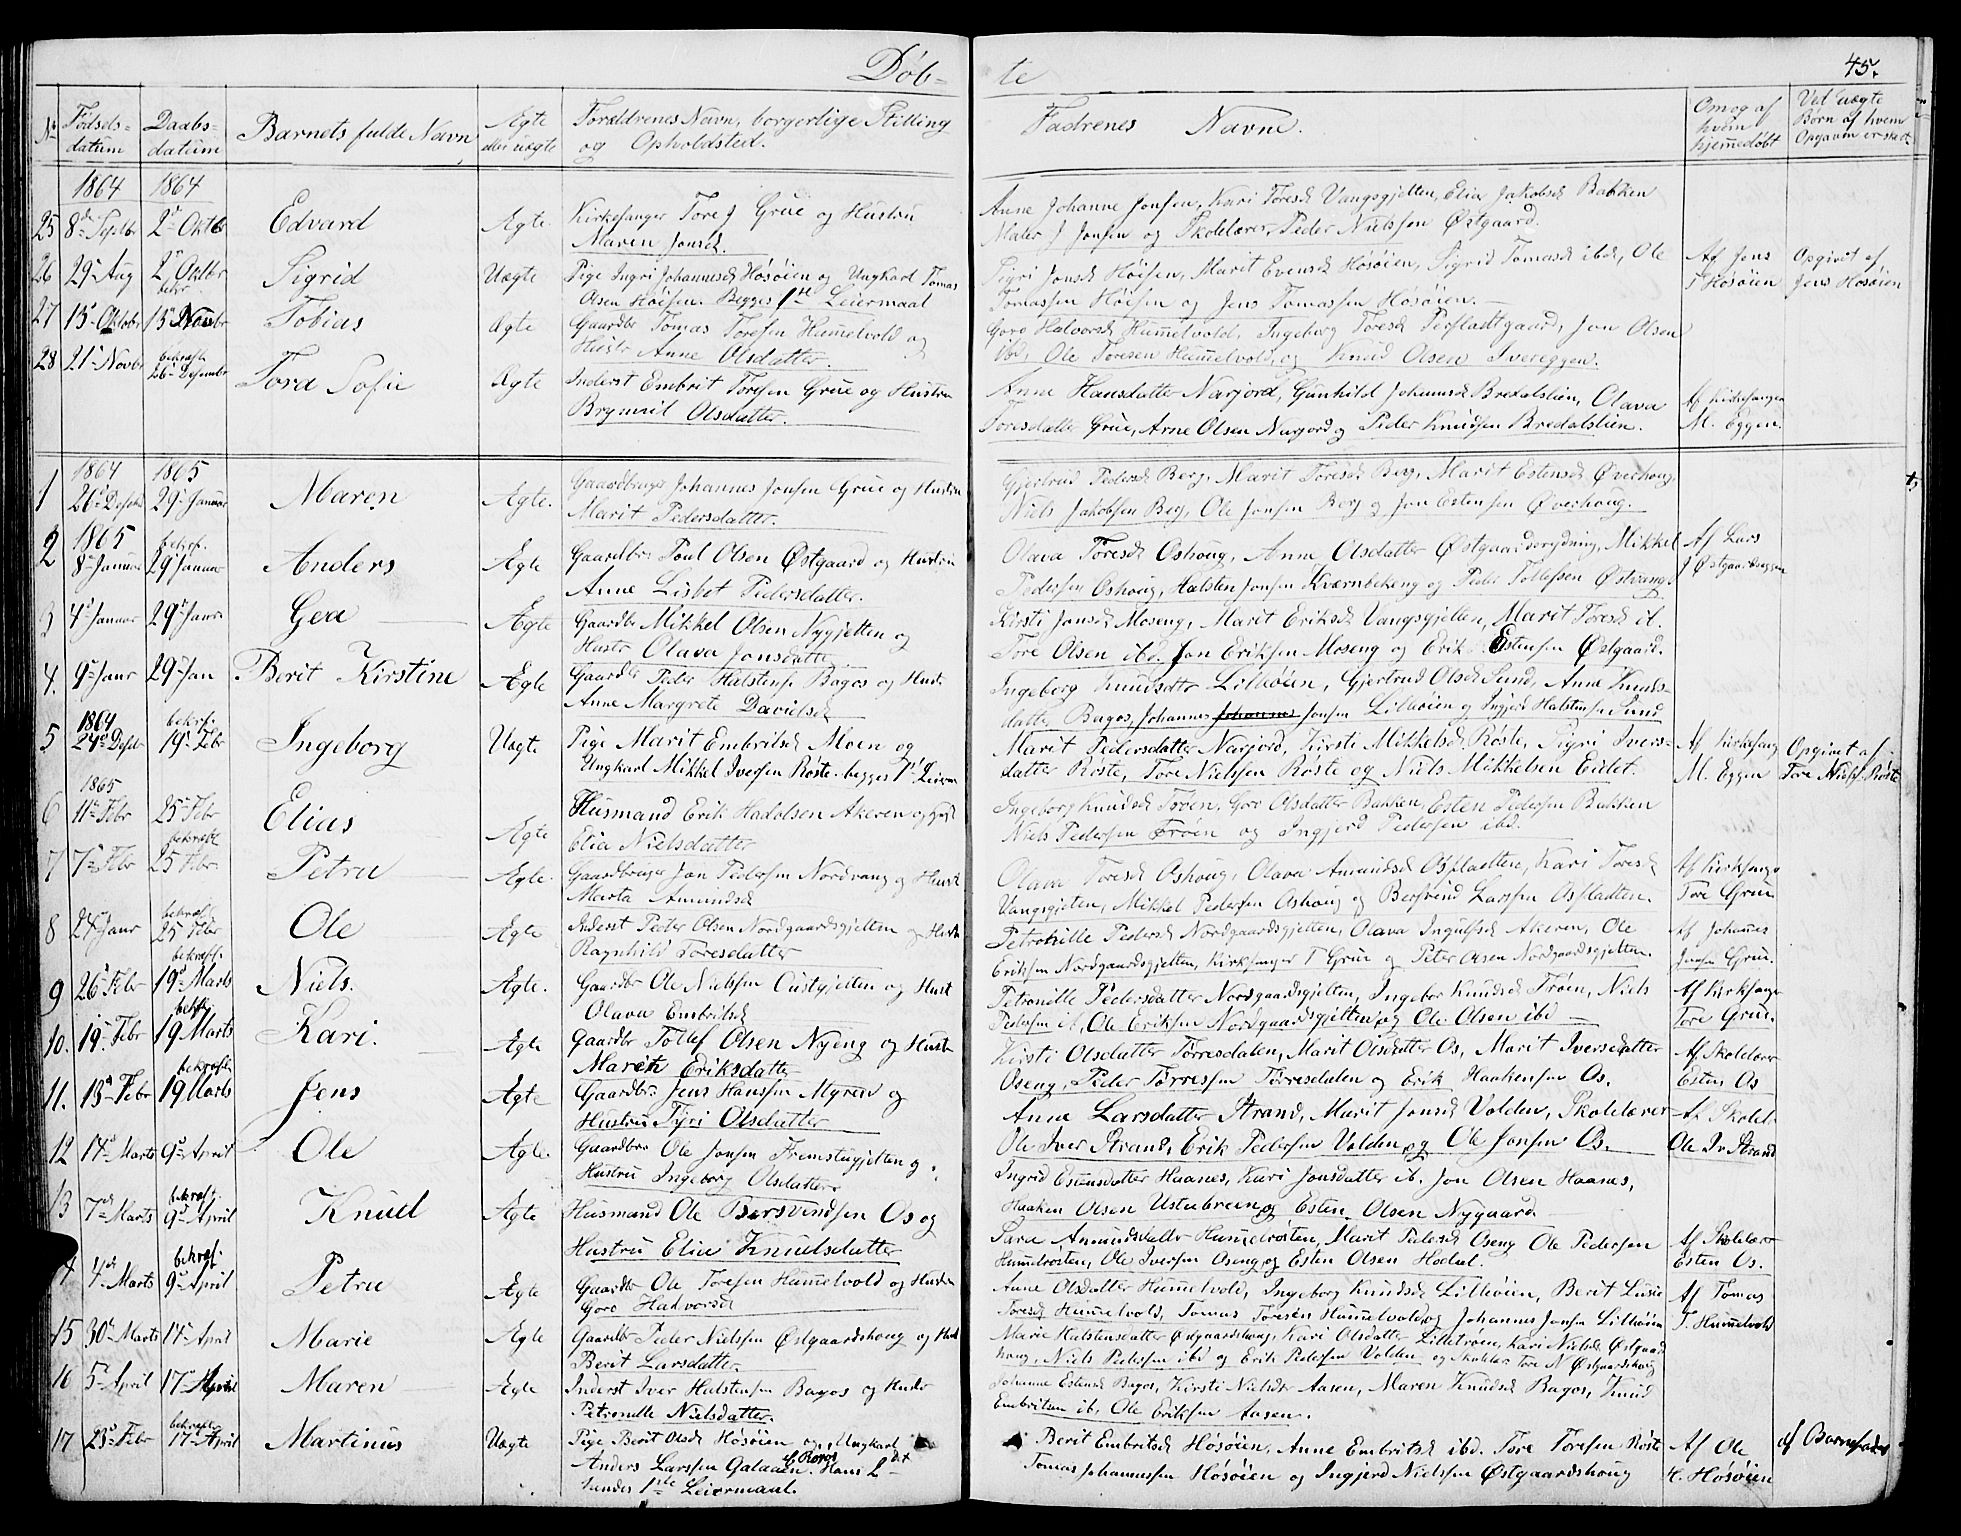 Døb= te 45.
No Fødsels= datum Daabs= datum Barnets fulde Navn Ægte eller uægte Forældrenes Navn, borgerlige Stilling og Opholdsted. Fadrenes Navne. Om og af hvem hjemedøbt Ved uægte Børn af hvem Opgaven er skeet
1864 1864
25 8de Septbr 2den Oktb Edvard Ægte. Kirkesanger Tore J Grue og Hustru
Maren Jonsd.
Anne Johanne Jonsen, Kari Toresd Vangsgjelten, Elia Jakobsd Bakken
Maler J Jonsen og Skolelærer Peder Nielssen Østgaard.
26 29 Aug 2 Oktbr Sigrid Uægte Pige Ingri Johannesd Høsøien og Ungkarl Tomas
Olsen Høisen. Begges 1ste Leiermaal
Sigri Jonsd Høisen, Marit Evensd Høsøien, Sigrid Tomasd ibd, Ole
Tomassen Høisen og Jens Tomassen Høsøien.
Af Jens T Høsøien
Opgivet af Jens Høsøien
27 15 Oktobr 15 Novbr Tobias Ægte Gaardbr Tomas Toresen Humelvold og
Hustr Anne Olsdatter.
Goro Halvorsd Humelvold, Ingeborg Toresd , Jon Olsen
ibd, Ole Toresen Humelvold, og Knud Olsen Svereggen.
28 21 Novbr bekræft. 26 Desembr Tora Sofie Ægte Inderst Embrit Toresen Grue og Hustru
Brynnil Olsdatter.
Anne Hansdatter Narjord, Gunhild Johannesd Bredalslien, Olava
Toresdatter Grue, Arne Olsen Narjord og Peder Knudsen Bredalslien.
Af Kirkesanger M. Eggen.
1864 1865
1 26 Desbr 29 Januar Maren Ægte. Gaardbruger Johannes Jonsen Grue og Hustru
Marit Pedersdatter.
Gjertrud Pedersd Berg, Marit Toresd Berg, Marit Estensd Øverhoug.
Niels Jakobsen Berg, Ole Jonsen Berg og Jon Estensen Øverhoug.
1865 bekræf.
2 8 Januar 29 Januar Anders Ægte Gaardbr. Poul Olsen Østgaard og Hustru
Anne Lisbet Pedersdatter.
Olava Toresd Oshoug, Anne Olsdatter Østgaardsrydning, Mikkel
Pedersen Oshoug, Halsten Jonsen Kværnbekeng og Peder Tollefsen Østvang.
Af Lars J Østgaardseggen
3 4 Januar 29 Janr Gea Ægte Gaardbr Mikkel Olsen Nygjelten og
Hustr Olava Jonsdatter
Kirsti Jonsd Moseng, Marit Eriksd Vangsgjelten, Marit Toresd ib.
Tore Olsen ibd. Jon Eriksen Moseng og Erik Estensen Østgaard.
4. 9 Janr 29 Jan Berit Kirstine Ægte Gaardbr Peder Halstens. Bagos og Hust.
Anne Margrete Davidsd
Ingeborg Knudsdtr Lilløien, Gjertrud Olsd Sund, Anne Knuds=
datter Bagos, Johannes Johannes Jonsen Lilløien og Ingjerd Halstensen Sund
1864 bekræf.
5 24 Desbr 19 Febr Ingeborg Uægte Pige Marit Embritsd Moen og
Ungkarl Mikkel Iversen Røste. begges 1 Leierm
Marit Pedersdatter Narjord, Kirsti Mikkelsd Røste, Sigri Ivers=
datter Røste, Tore Nielssen Røste og Niels Mikkelsen Eidet.
Af Kirkesang M. Eggen
Opgivet af Tore Nielss. Røste
1865
6 11 Febr 25 Febr Elias Ægte Husmand Erik Hadolsen Akeren og Hust
Elia Nielsdatter
Ingeborg Knudsd Trøen, Goro Olsdatter Bakken, Esten Pedersen Bakken
Niels Pedersen Trøen og Ingjerd Pedersen ibd.
bekræft
7 7 Febr 25 Febr. Petru Ægte. Gaardbruger Jon Pedersen Nordvang og Hustr
Marta Amundsd
Olava Toresd Oshoug, Olava Amundsd Osfladten, Kari Toresd
Vangsgjelten, Mikkel Pedersen Oshoug og Bersvend Larssen Osfladten.
Af Kirksanger Tore Grue
bekræf.
8 24 Janr 25 Febr Ole Ægte Inderst Peder Olsen Nordgaardsgjelten og Hustr
Ragnhild Toresdatter
Petronille Pedersd Nordgaardsgjelten, Olava Ingulfsd Akeren, Ole
Eriksen Nordgaardsgjelten, Kirksanger T Grue og Peter Olsen Nordgaardsgjelten.
Af Johannes Jonsen Grue.
bekræft.
9 26 Febr 19 Marts Niels. Ægte. Gaardbr Ole Nielssen Oustgjelten og Hust
Olava Embritsd
Petronille Pedersdatter Nordgaardsgjelten, Ingebor Knudsd Trøen, Niels
Pedersen ib, Ole Eriksen Nordgaardsgjelten og Ole Olsen ibd
Af Kirksange Tore Grue.
bekræf
10. 19. Febr 19 Marts Kari. Ægte Gaardbr Tollef Olsen Nyeng og Hustr
Marit Eriksdatter
Kirsti Olsdatter Tørresdalen, Marit Olsdatter Os, Marit Iversdatter
Oseng, Peder Tørressen Tørresdalen og Erik Haakensen Os.
Af Skolelærer Esten Os
bekræft
11. 13 Febr 19 Marts Jens Ægte Gaardbr. Jens Hanssen Myren og
Hustru Syri Olsdatter
Anne Larsdatter Strand, Marit Jonsd Volden, Skolelærer
Ole Iver Strand, Erik Pedersen Volden og Ole Jonsen Os.
Af Skolel. Ole Iv Strand
12 14 Marts 9 April Ole Ægte. Gaardbr. Ole Jonsen Fremstugjelten og
Hustru Ingeborg Olsdatter.
Ingrid Esensdatter Haanes, Kari Jonsdatter ib. Jon Olsen Haanes,
Haaken Olsen Ustubreen og Esten Olsen Nygaard.
bekræf.
13 7de Marts 9de April Knud Ægte Husmand Ole Bersvendsen Os og
Hustru Elie Knudsdatter
Sara Amundsdatter Humelrøsten, Marit Pedersd Oseng Ole Pedersen
Humelrøsten, Ole Iversen Oseng og Esten Olsen Hodal.
Af Skolelærer Esten Os.
bekræf.
4 4de Marts 9 April Petru Ægte Gaardbr Ole Toresen Humelvold og Hustru
Goro Halvorsd
Anne Olsdatter Humelvold, Ingeborg Knudsd Lilløien, Berit Lusie
Toresd Humelvold, Tomas Toresen Humelvold og Johannes Jonsen Lilløien
Af Tomas T. Humelvold
15 30 Marts 17 April Marie Ægte Gaardbr Peder Nielssen Østgaardshoug og Hust
Berit Larsdatter.
Marie Halstensdatter Østgaardshoug, Kari Olsdatter Lilletrøen, Kari Nielsd Østgaards
houg, Niels Pedersen ibd og Erik Pedersen Volden og Skolelær Tore N Østgaardshoug
16 5 April 17 April Maren Ægte Inderst Iver Halstensen Bagos og Hustr
Petronelle Nielsdatter.
Johanne Estensd Bagos, Kirsti Nielsdtr Aasen, Maren Knudsd Bagos, Knud
Embritsen ib. Ole Eriksen Aasen.
bekræfte
17 23 Febr 17 April Martinus Uægte Pige Berit Olsd Høsøien og Ungkarl
Anders Larssen Galaaen af Røros. Hans 2det
hendes 1ste Leiermaal.
Berit Embritsd Høsøien, Anne Embritsd ibd. Tore Toresen Røste
Tomas Johannessen Høsøien og Ingjerd Nielssen Østgaardshoug
Af Ole H. Høsøien
af Barnefader